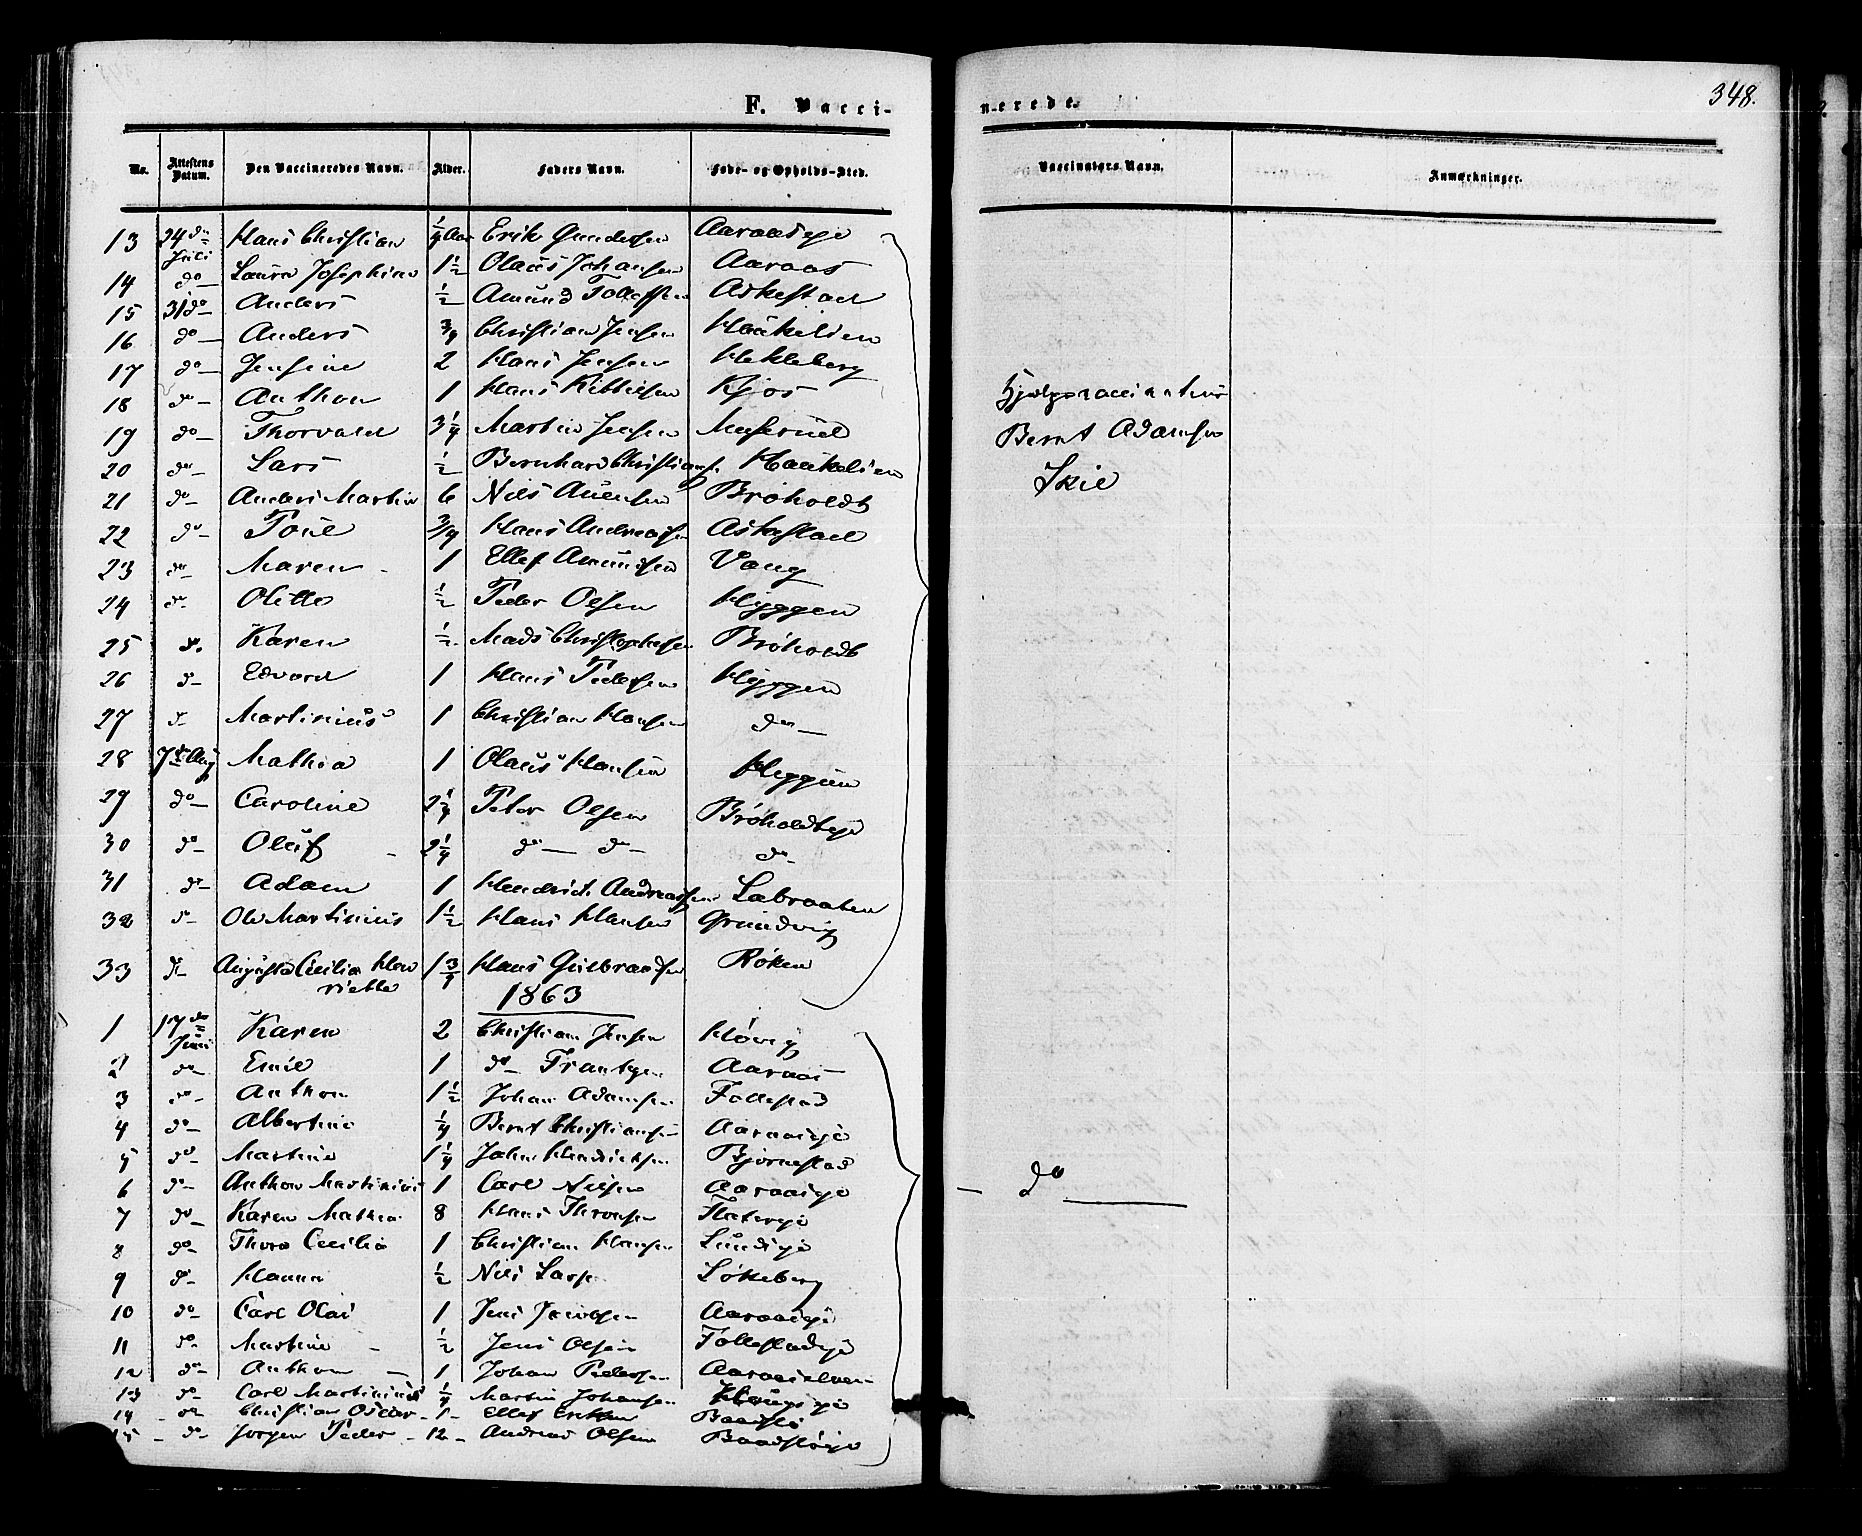 F. Vacci-
nerede.
348.
No. Attestens Datum. Den Vaccineredes Navn. Alder. Faders Navn. Føde- og Opholds-Sted. Vaccinatørs Navn. Anmærkninger.
13 24de Juli Hans Christian 1/4 Aar Erik Gundersen Aaraaseje
14 do Laura Josephine 1 1/2 Olaus Johansen Aaraas
15 31 do Anders 1/2 Amund Tollefsen Askestad
16 do Anders 3/4 Christian Jensen Haakelien
17 do Jensine 2 Hans Jensen Hekleberg
18 do Anthon 1 Hans Kittilsen Kjos
19 do Thorvald 3 1/4 Martin Jensen Muserud
20 do Lars 1/2 Bernhard Christians. Haakelien
21 do Anders Martin 6 Nils Auensen Brøholdt
22 do Tone 3/4 Hans Andreasen Askestad
23 do Maren 1 Ellef Amundsen Vang
24 do Olette 1/2 Peder Olsen Hyggen
25 do Karen 1/2 Mads Christophersen Brøholdt
26 do Edvard 1 Hans Pedersen Hyggen
27 do Martinius 1 Christian Hansen do
28 7de Aug Mathea 1 Olaus Hansen Heggum
29 do Caroline 2 1/4 Peter Olsen Brøholdteje
30 do Oluf 2 1/4 do do do
31 do Adam 1 Hendrich Andreassen Labraaten
32 do Ole Martinius 1 1/2 Hans Hansen Grundvig
33 do Augusta Cecilia Hen
riette 1 3/4 Hans Gulbrandsen Røken
Hjælpevaccinatør
Bernt Adamsen
Skie
1863
1 17de Juni Karen 2 Christian Jensen Høvig
2 do Emil 1 do Frantzen Aaraas
3 do Anthon 1 1/2 Johan Adamsen Follestad
4 do Albertine 1/4 Bernt Christiansen Aaraaseje
5 do Martine 1 1/4 John Hendriksen Bjørnestad
6 do Anthon Martinius 1 Carl Nilsen Aaraaseje
7 do Karen Mathea 8 Hans Thronsen
8 do Thora Cecilia 1 Christian Hansen Lundeje
9 do Hanna 1/2 Nils Larsen Løkeberg
10 do Carl Olai 1 Jens Jacobsen Aaraaseje
11 do Martine 1/2 Jens Olsen Follestadeje
12 do Anthon 1 Johan Pedersen
13 do Carl Martinius 1/4 Martin Johansen
14 do Christian Oscar 1 Ellef Eriksen Baadstø
15 do Jørgen Peder 12 Andreas Olsen Baadstøeje
do